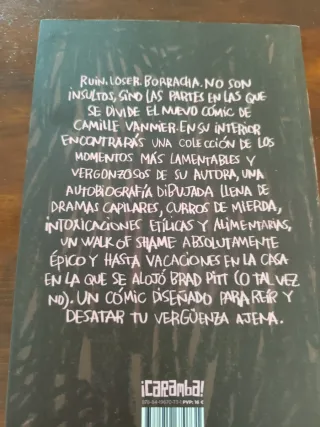 RUIN. LOSER. BORRACHA. NO SON
INSULTOS, SINO LAS PARTES EN LAS QUE
SE DIVIDE EL NUEVO CÓMIC DE
CAMILLE VANNIER. EN SU INTERIOR
ENCONTRARÁS UNA COLECCIÓN DE LOS
MOMENTOS MÁS LAMENTABLES Y
VERGONZOSOS DE SU AUTORA, UNA
AUTOBIOGRAFÍA DIBUJADA LLENA DE
DRAMAS CAPILARES, CURROS DE MIERDA,
INTOXICACIONES ETÍLICAS Y ALIMENTARIAS,
UN WALK OF SHAME ABSOLUTAMENTE
ÉPICO Y HASTA VACACIONES EN LA CASA
EN LA QUE SE ALOJÓ BRAD PITT (O TAL VEZ
NO). UN CÓMIC DISEÑADO PARA REÍR Y
DESATAR TU VERGÜENZA AJENA.
¡CARAMBA!
PVP: 16 €